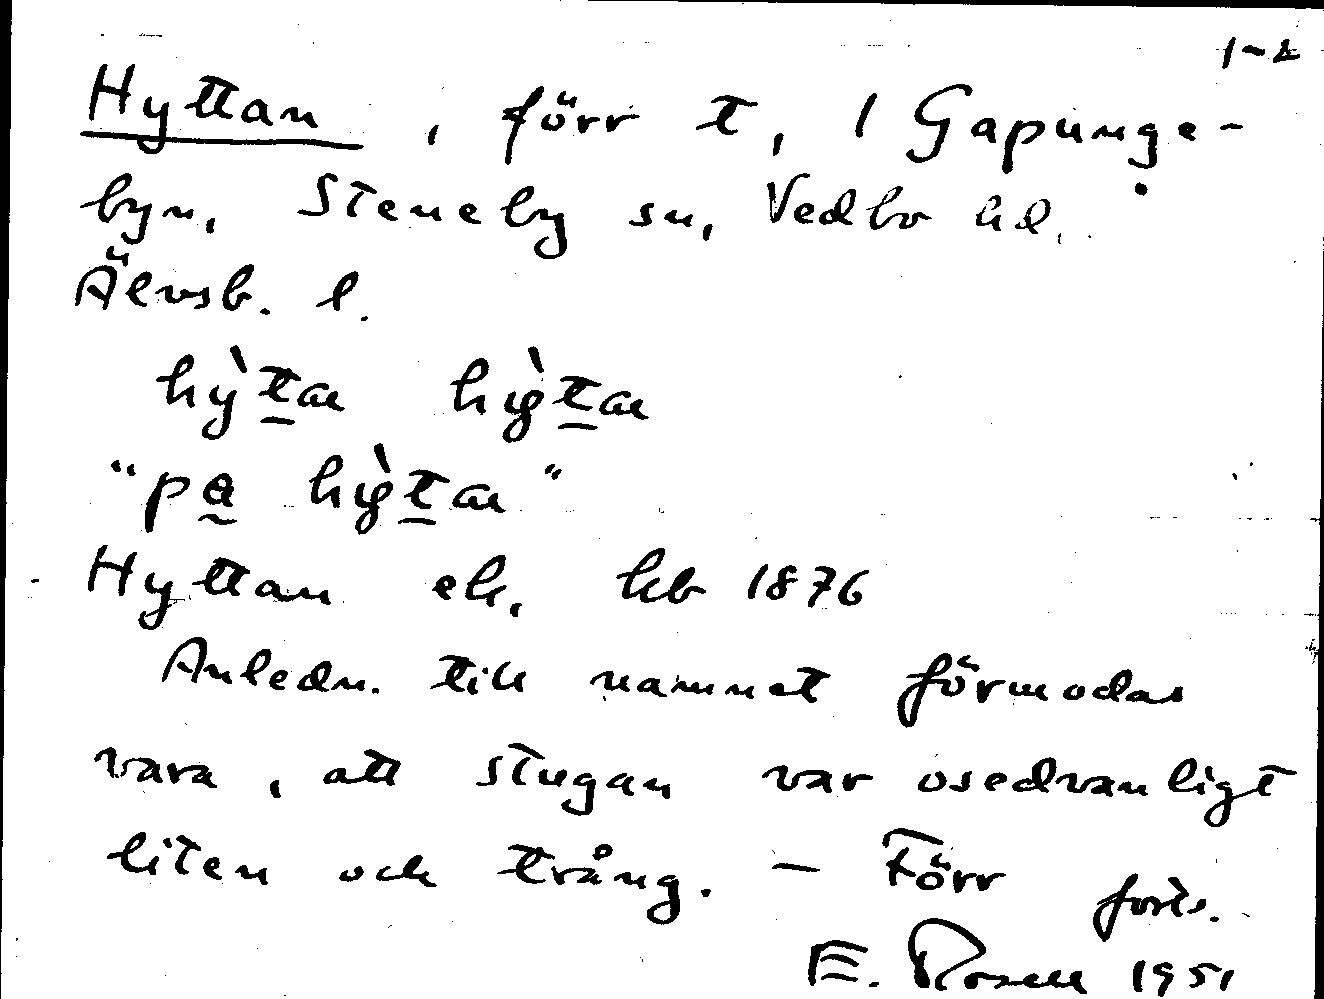 1-2
Hyttan, förr t, / Gapunge-
byn, Steneby sn, Vedbo hd,
Älvsb. l.
hỳtan hỳtan
"pa hỳtan"
Hyttan eh, hb 1876
Anledn. till namnet förmodas
vara, att stugan var osedvanligt
liten och trång. – Förr forts.
E. Rosell 1951